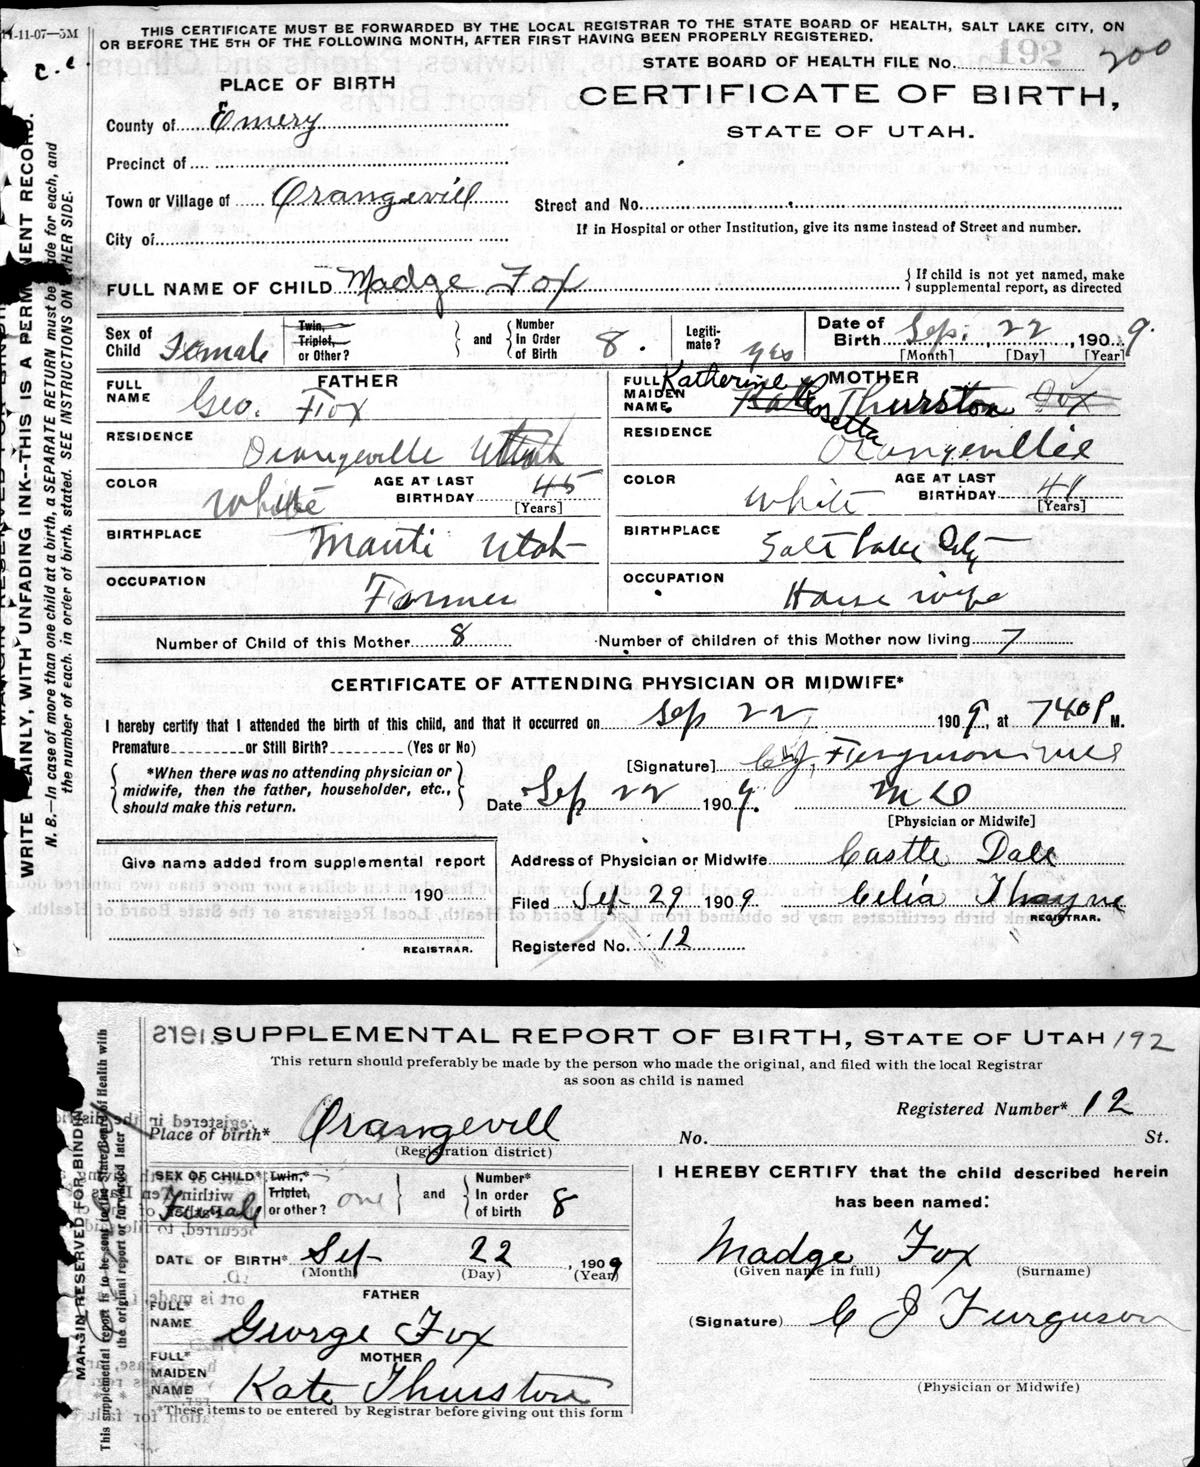 11-11-07—5M
THIS CERTIFICATE MUST BE FORWARDED BY THE LOCAL REGISTRAR TO THE STATE BOARD OF HEALTH, SALT LAKE CITY, ON
OR BEFORE THE 5TH OF THE FOLLOWING MONTH, AFTER FIRST HAVING BEEN PROPERLY REGISTERED.
STATE BOARD OF HEALTH FILE No. 192 200
PLACE OF BIRTH
CERTIFICATE OF BIRTH,
STATE OF UTAH.
County of Emery
Precinct of
Town or Village of Orangevill
Street and No.
City of
If in Hospital or other Institution, give its name instead of Street and number.
FULL NAME OF CHILD Madge Fox
{ If child is not yet named, make
supplemental report, as directed
Sex of Child Female
Twin, Triplet, or Other?
and
Number in Order of Birth 8.
Legitimate? yes
Date of Birth Sep. 22, 1909.
[Month] [Day] [Year]
FATHER
FULL NAME Geo. Fox
RESIDENCE Orangeville Utah
COLOR White
AGE AT LAST BIRTHDAY 45
[Years]
BIRTHPLACE Manti Utah
OCCUPATION Farmer
MOTHER
FULL MAIDEN NAME Katherine Kate Rosetta Thurston Fox
RESIDENCE Orangeville
COLOR White
AGE AT LAST BIRTHDAY 41
[Years]
BIRTHPLACE Salt Lake City
OCCUPATION House wife
Number of Child of this Mother 8
Number of children of this Mother now living 7
CERTIFICATE OF ATTENDING PHYSICIAN OR MIDWIFE*
I hereby certify that I attended the birth of this child, and that it occurred on Sep 22, 1909, at 740 P M.
Premature or Still Birth? (Yes or No)
*When there was no attending physician or
midwife, then the father, householder, etc.,
should make this return.
[Signature] C. J. Ferguson
Date Sep 22 1909. M D
[Physician or Midwife]
Give name added from supplemental report
190
REGISTRAR.
Address of Physician or Midwife Castle Dale
Filed Sep 29 1909 Celia Thayne
REGISTRAR.
Registered No. 12
WRITE PLAINLY, WITH UNFADING INK--THIS IS A PERMANENT RECORD.
N. B.—In case of more than one child at a birth, a SEPARATE RETURN must be made for each, and
the number of each, in order of birth, stated. SEE INSTRUCTIONS ON OTHER SIDE.
SUPPLEMENTAL REPORT OF BIRTH, STATE OF UTAH 192
This return should preferably be made by the person who made the original, and filed with the local Registrar
as soon as child is named
Registered Number* 12
Place of birth* Orangevill
(Registration district)
No. St.
SEX OF CHILD* Female
Twin,* Triplet, or other? one
and
Number* In order of birth 8
DATE OF BIRTH* Sep 22, 1909
(Month) (Day) (Year)
FATHER
FULL* NAME George Fox
MOTHER
FULL* MAIDEN NAME Kate Thurston
*These items to be entered by Registrar before giving out this form
I HEREBY CERTIFY that the child described herein
has been named:
Madge Fox
(Given name in full) (Surname)
(Signature) C J Furguson
(Physician or Midwife)
MARGIN RESERVED FOR BINDING
This supplemental report is to be sent to the State Board of Health with
the original report or forwarded later